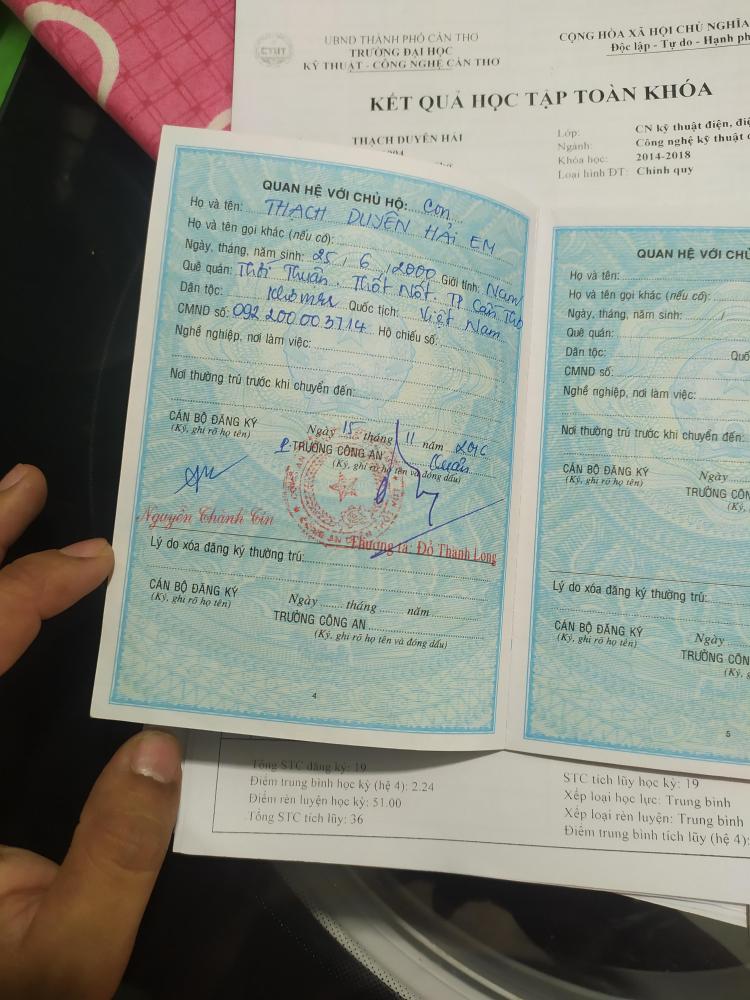 UBND THÀNH PHỐ CẦN THƠ
TRƯỜNG ĐẠI HỌC
KỸ THUẬT - CÔNG NGHỆ CẦN THƠ
CỘNG HÒA XÃ HỘI CHỦ NGHĨA
Độc lập - Tự do - Hạnh
KẾT QUẢ HỌC TẬP TOÀN KHÓA
THẠCH DUYÊN HẢI
Lớp: CN kỹ thuật điện,
Ngành: Công nghệ kỹ thuật
Khóa học: 2014-2018
Loại hình ĐT: Chính quy
QUAN HỆ VỚI CHỦ HỘ: Con
Họ và tên: THẠCH DUYÊN HẢI EM
Họ và tên gọi khác (nếu có):
Ngày, tháng, năm sinh: 25 / 6 / 2000 Giới tính: Nam
Quê quán: Thới Thuận. Thốt Nốt. Tp Cần Thơ
Dân tộc: Khơmer Quốc tịch: Việt Nam
CMND số: 092 200 003714 Hộ chiếu số:
Nghề nghiệp, nơi làm việc:
Nơi thường trú trước khi chuyển đến:
CÁN BỘ ĐĂNG KÝ
(Ký, ghi rõ họ tên)
Ngày 15 tháng 11 năm 2016
TRƯỞNG CÔNG AN Quận
(Ký, ghi rõ họ tên và đóng dấu)
Nguyễn Chánh Tín
Thượng tá: Đỗ Thành Long
Lý do xóa đăng ký thường trú:
CÁN BỘ ĐĂNG KÝ
(Ký, ghi rõ họ tên)
Ngày tháng năm
TRƯỞNG CÔNG AN
(Ký, ghi rõ họ tên và đóng dấu)
4
QUAN HỆ VỚI
Họ và tên:
Họ và tên gọi khác (nếu có):
Ngày, tháng, năm sinh: /
Quê quán:
Dân tộc:
CMND số:
Nghề nghiệp, nơi làm việc:
Nơi thường trú trước khi chuyển đến:
CÁN BỘ ĐĂNG KÝ
(Ký, ghi rõ họ tên)
Ngày
TRƯỞNG
Lý do xóa đăng ký thường trú:
CÁN BỘ ĐĂNG KÝ
(Ký, ghi rõ họ tên)
Ngày
TRƯỞNG
5
Tổng STC đăng ký: 19
Điểm trung bình học kỳ (hệ 4): 2.24
Điểm rèn luyện học kỳ: 51.00
Tổng STC tích lũy: 36
STC tích lũy học kỳ: 19
Xếp loại học lực: Trung bình
Xếp loại rèn luyện: Trung bình
Điểm trung bình tích lũy (hệ 4):